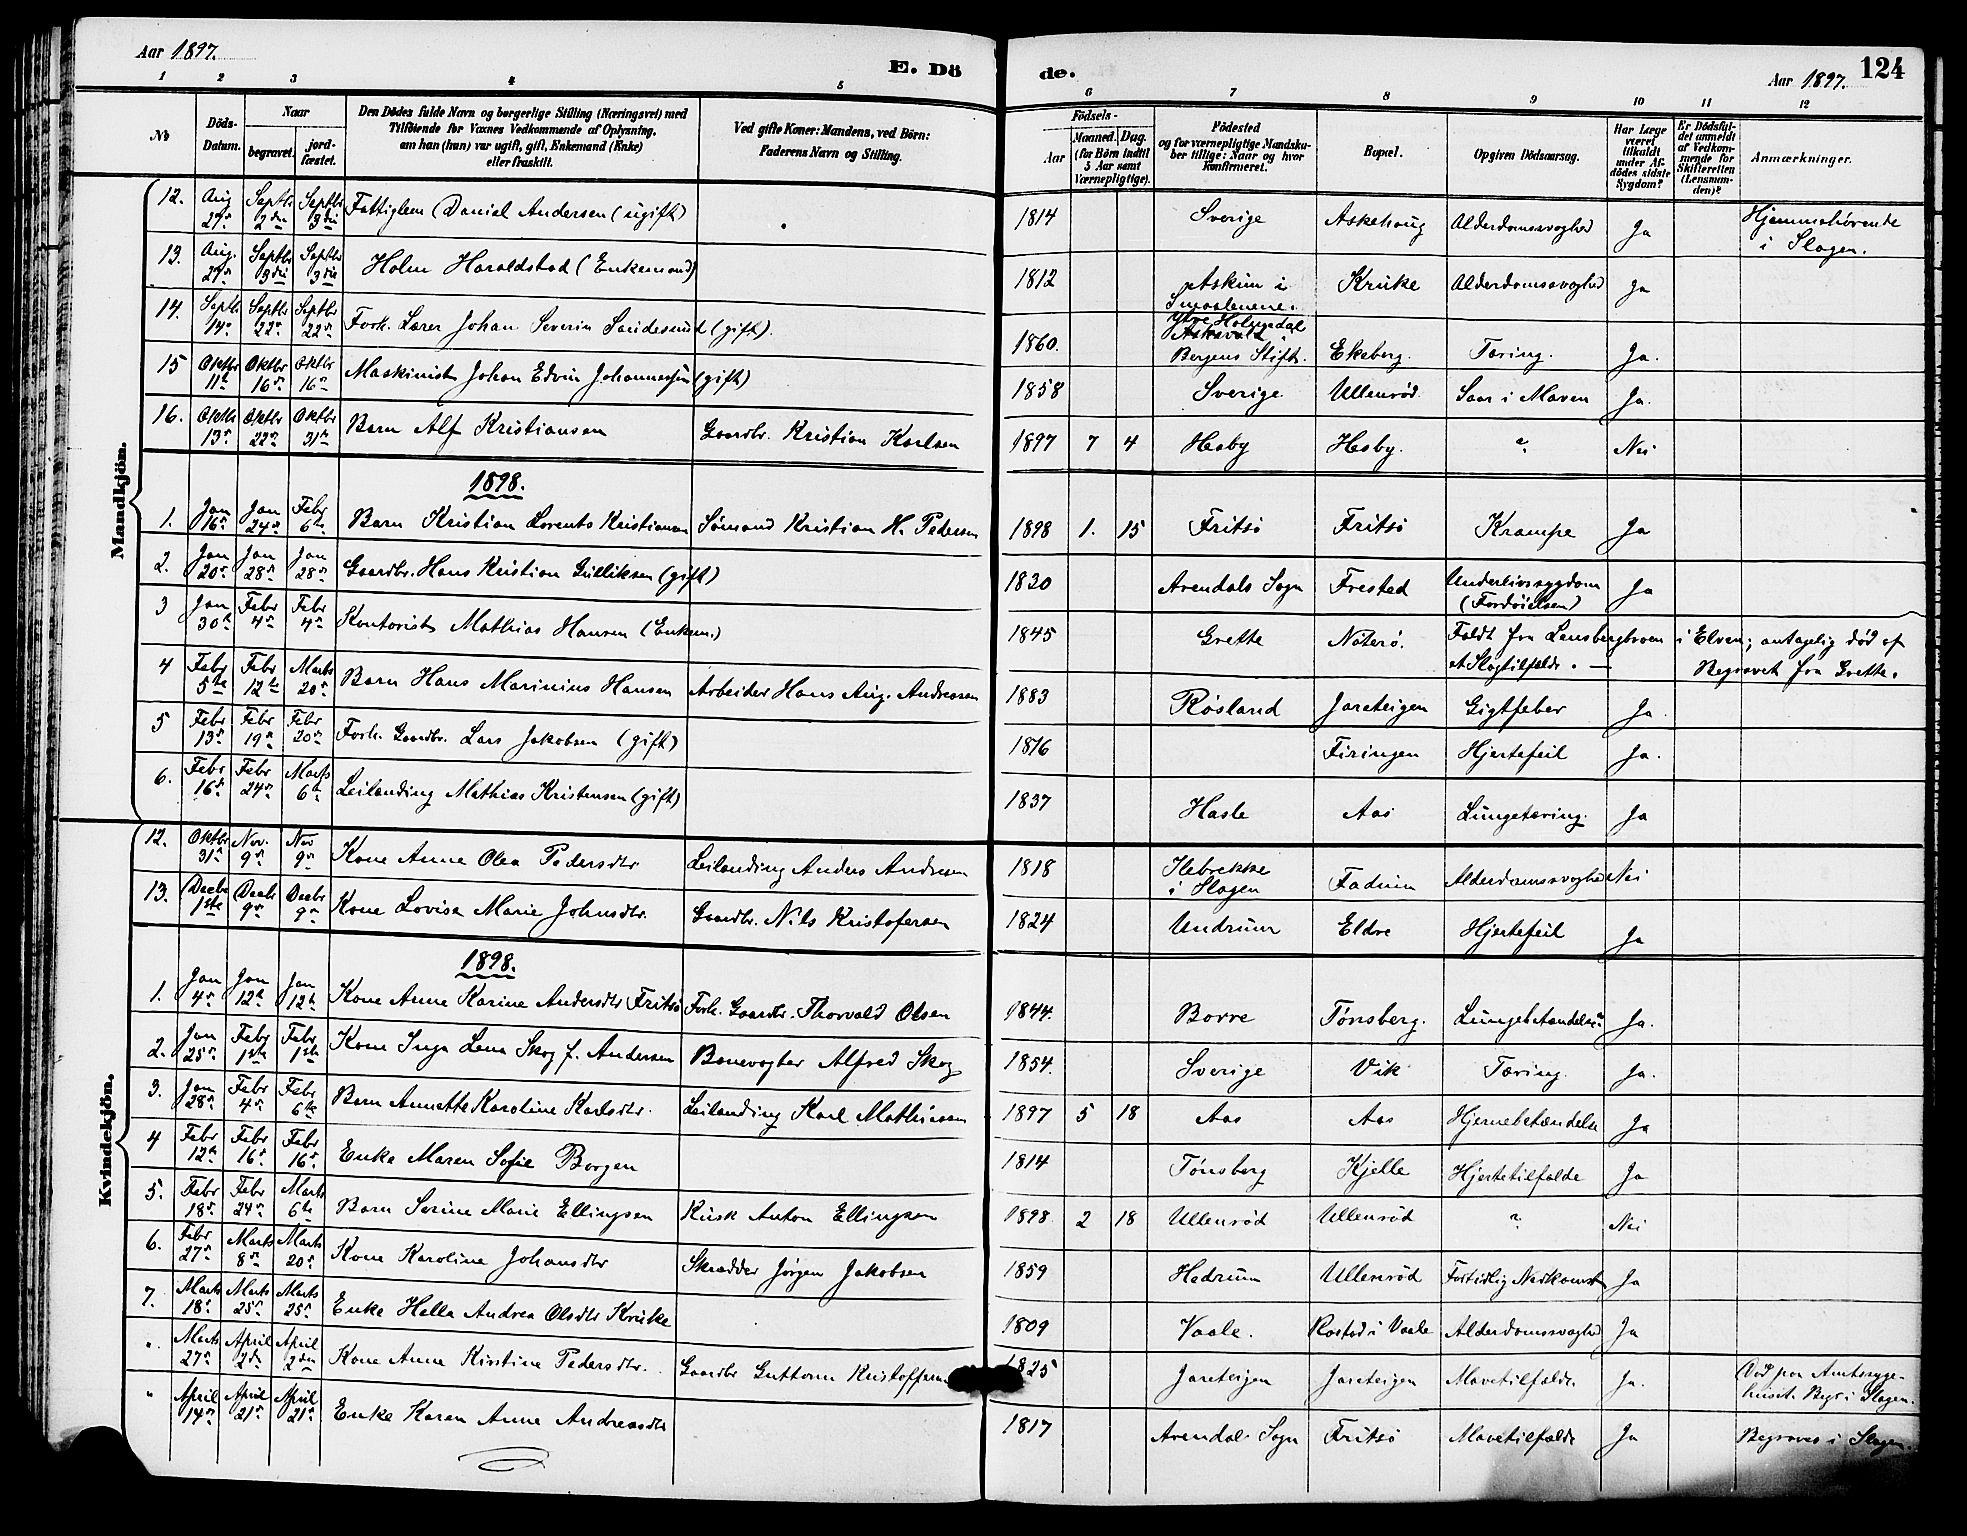 Aar 1897.
E. Dö
de.
Aar 1897.
124
1 2 3 4 5 6 7 8 9 10 11 12
No
Döds-Datum.
Naar
begravet.
jord-fæstet.
Den Dödes fulde Navn og borgerlige Stilling (Næringsvei) med Tilföiende for Voxnes Vedkommende af Oplysning, om han (hun) var ugift, gift, Enkemand (Enke) eller fraskilt.
Ved gifte Koner: Mandens, ved Börn: Faderens Navn og Stilling.
Födsels-
Aar
Maaned. Dag.
(for Börn indtil 5 Aar samt Værnepligtige).
Födested og for værnepligtige Mandskaber tillige: Naar og hvor konfirmeret.
Bopæl.
Opgiven Dödsaarsag.
Har Læge været tilkaldt under Afdödes sidste Sygdom?
Er Dödsfaldet anmeldt af Vedkommende for Skifteretten (Lensmanden)?
Anmærkninger.
Mandkjön.
12. Aug 27de Septbr 2den Septbr 3die Fattiglem Daniel Andersen (ugift) 1814 Sverige Askehaug Alderdomssvaghed Ja Hjemmehørende i Slagen.
13. Aug. 29de Septbr 3die Septbr 3die Holm Haraldstad (Enkemand) 1812 Askim i Smaalenene. Kruke Alderdomssvaghed Ja
14. Septbr 14de Septbr 22de Septbr 22de Forh. Lærer Johan Severin Sandesund (gift). 1860. Ytre Holmedal Askevold Bergens Stift. Ekeberg. Tæring. Ja.
15 Oktbr 11te Oktbr 16de Oktbr 16de Maskinist Johan Edvin Johannessen (gift) 1858 Sverige Ullenrød Saar i Maven Ja.
16. Oktbr 13de Oktbr 22de Oktbr 31te Barn Alf Kristiansen Gaardbr. Kristian Karlsen 1897 7 4 Hesby Hesby. ? Nei
1898.
1. Jan 16de Jan 24de Febr 6te Barn Kristian Lorents Kristiansen Sømand Kristian H. Pedersen 1898 1. 15 Fritsø Fritsø Krampe Ja
2. Jan 20de Jan 28de Jan 28de Gaardbr. Hans Kristian Gulliksen (gift) 1830 Arendals Sogn Frested Underlivssygdom (Fordøielsen) Ja
3 Jan 30te Febr 4de Febr 4de Kontorist Mathias Hansen (Enkem.) 1845 Grette Nøterø. Faldt fra Lensbergbroen i Elven; antagelig død af et Slagtilfælde. — Begravet fra Grette.
4 Febr 5te Febr 12te Marts 20de Barn Hans Marinius Hansen Arbeider Hans Aug. Andreasen 1883 Røsland Jareteigen Gigtfeber Ja.
5 Febr 13de Febr 19de Febr 20de Forh. Gaardbr. Lars Jakobsen (gift) 1816 Firingen Hjertefeil Ja.
6. Febr 16de Febr 24de Marts 6te Leilænding Mathias Kristensen (gift) 1837 Hasle Aas Lungetæring. Ja
Kvindekjön.
12. Oktbr 31te Nov. 9de Nov 9de Kone Anne Olea Pedersdtr Leilænding Anders Andresen 1818 Ilebrekke i Slagen Fadum Alderdomssvaghed Nei
13. Decbr 1ste Decbr 9de Decbr 9de Kone Lovise Marie Johnsdtr. Gaardbr. Nils Kristofersen 1824 Undrum Eldre Hjertefeil Ja
1898.
1. Jan 4de Jan 12te Jan 12te Kone Anne Karine Andersdtr Fritsø Forh. Gaardbr. Thorvald Olsen 1844. Borre Tønsberg. Lungebetændelse Ja.
2. Jan 25de Febr 1ste Febr 1ste Kone Inga Lena Skog f. Andersen Banevogter Alfred Skog 1854. Sverige Vik Tæring. Ja.
3. Jan 28de Febr 4de Febr 6te Barn Annette Karoline Karlsdtr. Leilænding Karl Mathiassen 1897 5 18 Aas Aas Hjernebetændelse Ja
4 Febr 12te Febr 16de Febr 16de Enke Maren Sofie Borgen 1814 Tønsberg Kjelle Hjertetilfælde Ja
5. Febr 18de Febr 24de Marts 6te Barn Serine Marie Ellingsen Kusk Anton Ellingsen 1898 2 18 Ullenrød Ullenrød ? Nei
6. Febr 27de Marts 8de Marts 20de Kone Karoline Johansdtr Skrædder Jørgen Jakobsen 1859 Hedrum Ullenrød Fortidlig Nedkomst Ja
7. Marts 18de Marts 25de Marts 25de Enke Helle Andrea Olsdtr Kruke 1809 Vaale. Rostad i Vaale Alderdomssvaghed Ja
" Marts 27de April 2den April 2den Kone Anne Kristine Pedersdtr. Gaardbr Guttorm Kristoffersen 1825 Jareteigen Jareteigen Mavetilfælde Ja. Død paa Amtssygehuset. Begr. i Slagen.
" April 14de April 21de April 21de Enke Karen Anne Andreasdtr 1817 Arendal Sogn Fritsø Mavetilfælde Ja Begraves i Slagen.